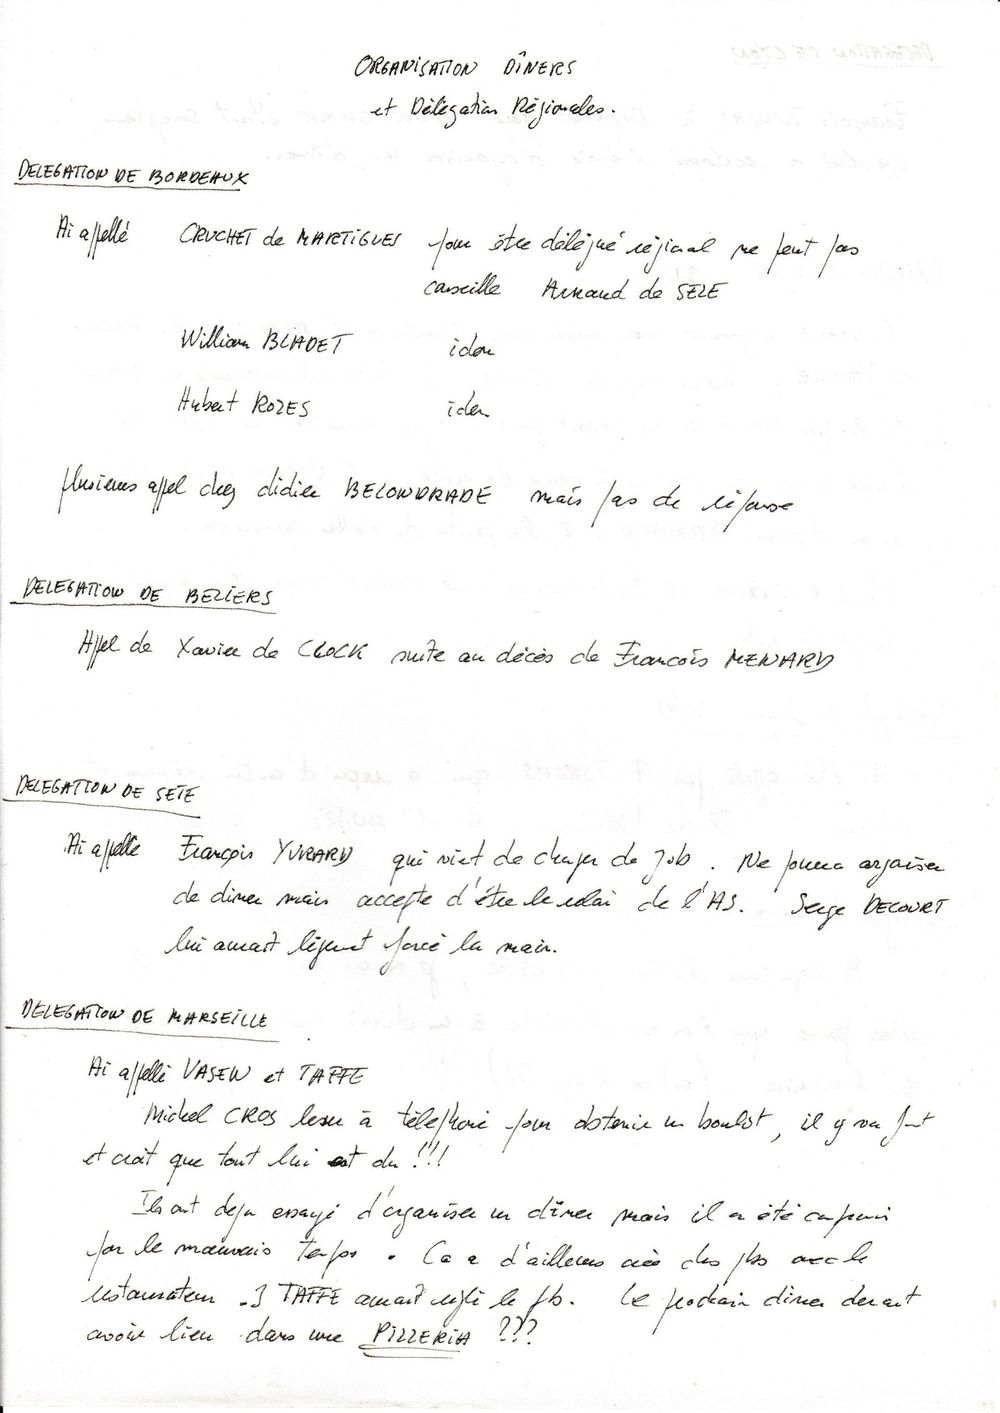 ORGANISATION DÎNERS
et Délégation Régionales.
DELEGATION DE BORDEAUX
Ai appellé CRUCHET de MARTIGUES pour être délégué régional ne peut pas
conseille Arnaud de SEZE
William BLADET idem
Hubert ROZES idem
plusieurs appel chez didier BELONDRADE mais pas de réponse
DELEGATION DE BEZIERS
Appel de Xavier de CLOCK suite au décès de François MENARD
DELEGATION DE SETE
Ai appelle François YVRARD qui vient de changer de Job. Ne pourra organiser
de diner mais accepte d'être le relai de l'AS. Serge DECOURT
lui aurait légèrement forcé la main.
DELEGATION DE MARSEILLE
Ai appellé VASEW et TAFFE
Michel CROS à téléphoné pour obtenir un boulot, il y va fort
et croît que tout lui est du !!!
Ils ont deja essayé d'organiser un dîner mais il a été
par le mauvais temps. Ca a d'ailleurs crée des pbs avec le
restaurateur. J TAFFE aurait reglé le pb. Le prochain diner devant
avoir lieu dans une PIZZERIA ???